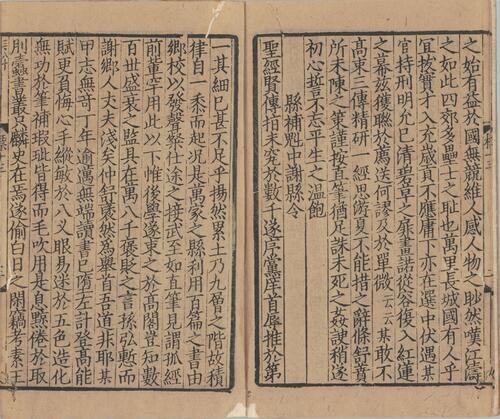 之始有益於國無競維人感人物之眇然嘆江濤
之如此四郊多壘士之恥也萬里長城國有人乎
宜拔實才入充歲貢不應庸下亦在選中伏遇某
官持刑明允已清碧草之扉畫諾從容復入紅蓮
之幕茲獲聯於薦送何謬及於單微云云某敢不
高束三傳精研一經思游夏不能措之辭條舒賁
所未陳之第謹按直筆猶足誅未死之姦諛稍遂
初心誓不志平生之溫飽
縣補魁中謝縣令
聖經賢傳拍未究於數十遂序黨庠首辱推於第
一其細已甚不足乎揚然累土乃九層之階故積
律自一黍而起况是萬家之縣利用百篇之書由
鄉校以發聲筞仕途之接武至如直筆見謂孤經
前董罕用此以下惟後學遂束之於高閣豈知數
百世盛衰之監具在萬八千褒貶之言孫弘慙而
謝鄉人丈夫淺矣仲舒褎然為舉首吾道非耶某
甲志無奇丁年逾邁無端讀書已隋左計登高能
賦更負悔心手縱敏於八叉眼易迷於五色造化
無功於筆補瑕玼皆得而毛吹用是息黥倦於取
刖蠹書業麟史在焉遂偷白日之閑竊考素王